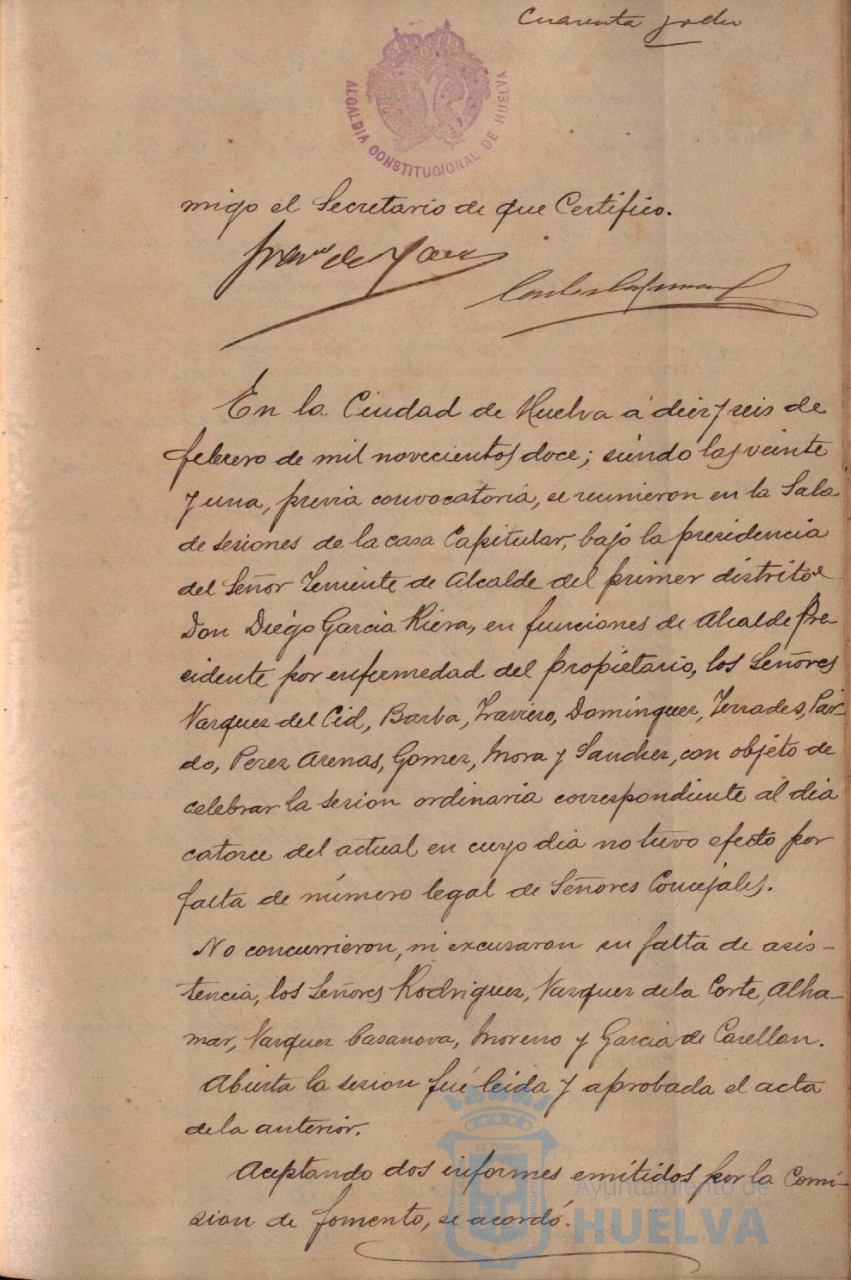 Cuarenta y
ALCALDIA CONSTITUCIONAL DE HUELVA
migo el Secretario de que Certifico.
En la Ciudad de Huelva á diez y seis de
febrero de mil novecientos doce; siendo las veinte
y una, previa convocatoria, se reunieron en la Sala
de sesiones de la casa Capitular, bajo la presidencia
del Señor Teniente de Alcalde del primer distrito
Don Diego Garcia Riera, en funciones de Alcalde Pre-
sidente por enfermedad del propietario, los Señores
Vazquez del Cid, Barba, Domínguez, Terrades, Par-
do, Perez Arenas, Gomez, Mora y Sanchez, con objeto de
celebrar la sesion ordinaria correspondiente al dia
catorce del actual en cuyo dia no tuvo efecto por
falta de número legal de Señores Concejales.
No concurrieron, ni excusaron su falta de asis-
tencia, los Señores Rodriguez, Vazquez de la Corte, Alha-
mar, Vazquez Casanova, Moreno y Garcia de
Abierta la sesion fué leida y aprobada el acta
de la anterior.
Aceptando dos informes emitidos por la Comi-
sion de fomento, se acordó.
Ayuntamiento de
HUELVA